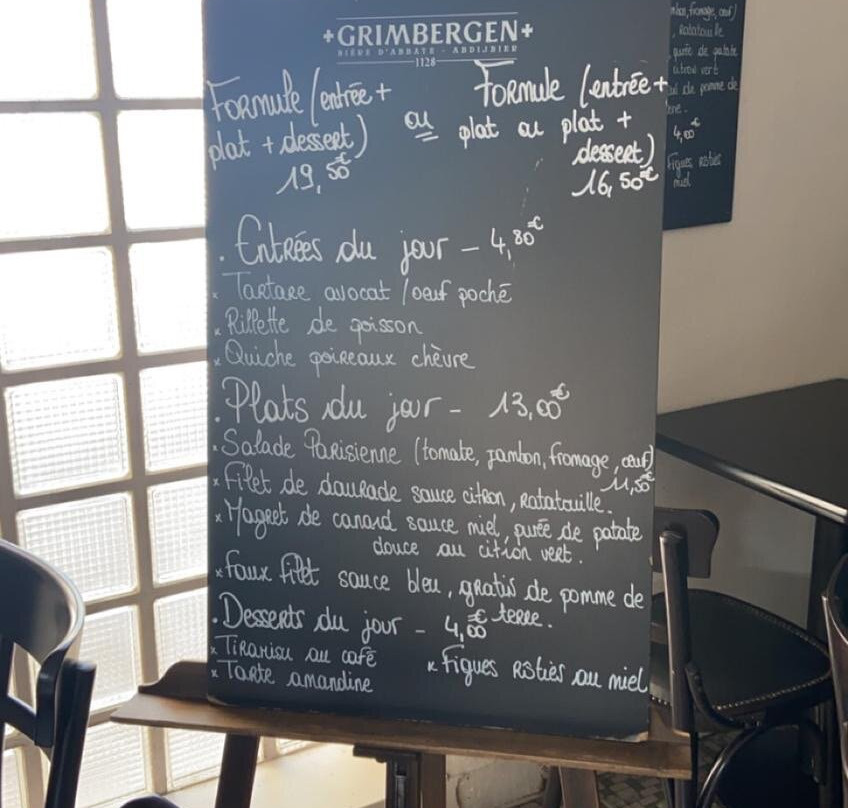 GRIMBERGEN
BIÈRE D'ABBAYE - ABDIJBIER
1128
Formule (entrée +
plat + dessert)
19,50€
ou
Formule (entrée +
plat ou plat +
dessert)
16,50€
. Entrées du jour - 4,80€
x Tartare avocat / oeuf poché
x Rillette de poisson
x Quiche poireaux chèvre
. Plats du jour - 13,00€
x Salade Parisienne (tomate, jambon, fromage, œuf)
11,50€
x Filet de daurade sauce citron, Ratatouille.
x Magret de canard sauce miel, purée de patate
douce au citron vert.
x Faux filet sauce bleu, gratin de pomme de
terre.
. Desserts du jour - 4,00€
x Tiramisu au café
x Tarte amandine
x Figues Rôties au miel
fromage, œuf)
, Ratatouille
purée de patate
citron vert
de pomme de
terre.
4,00€
Figues rôties
miel